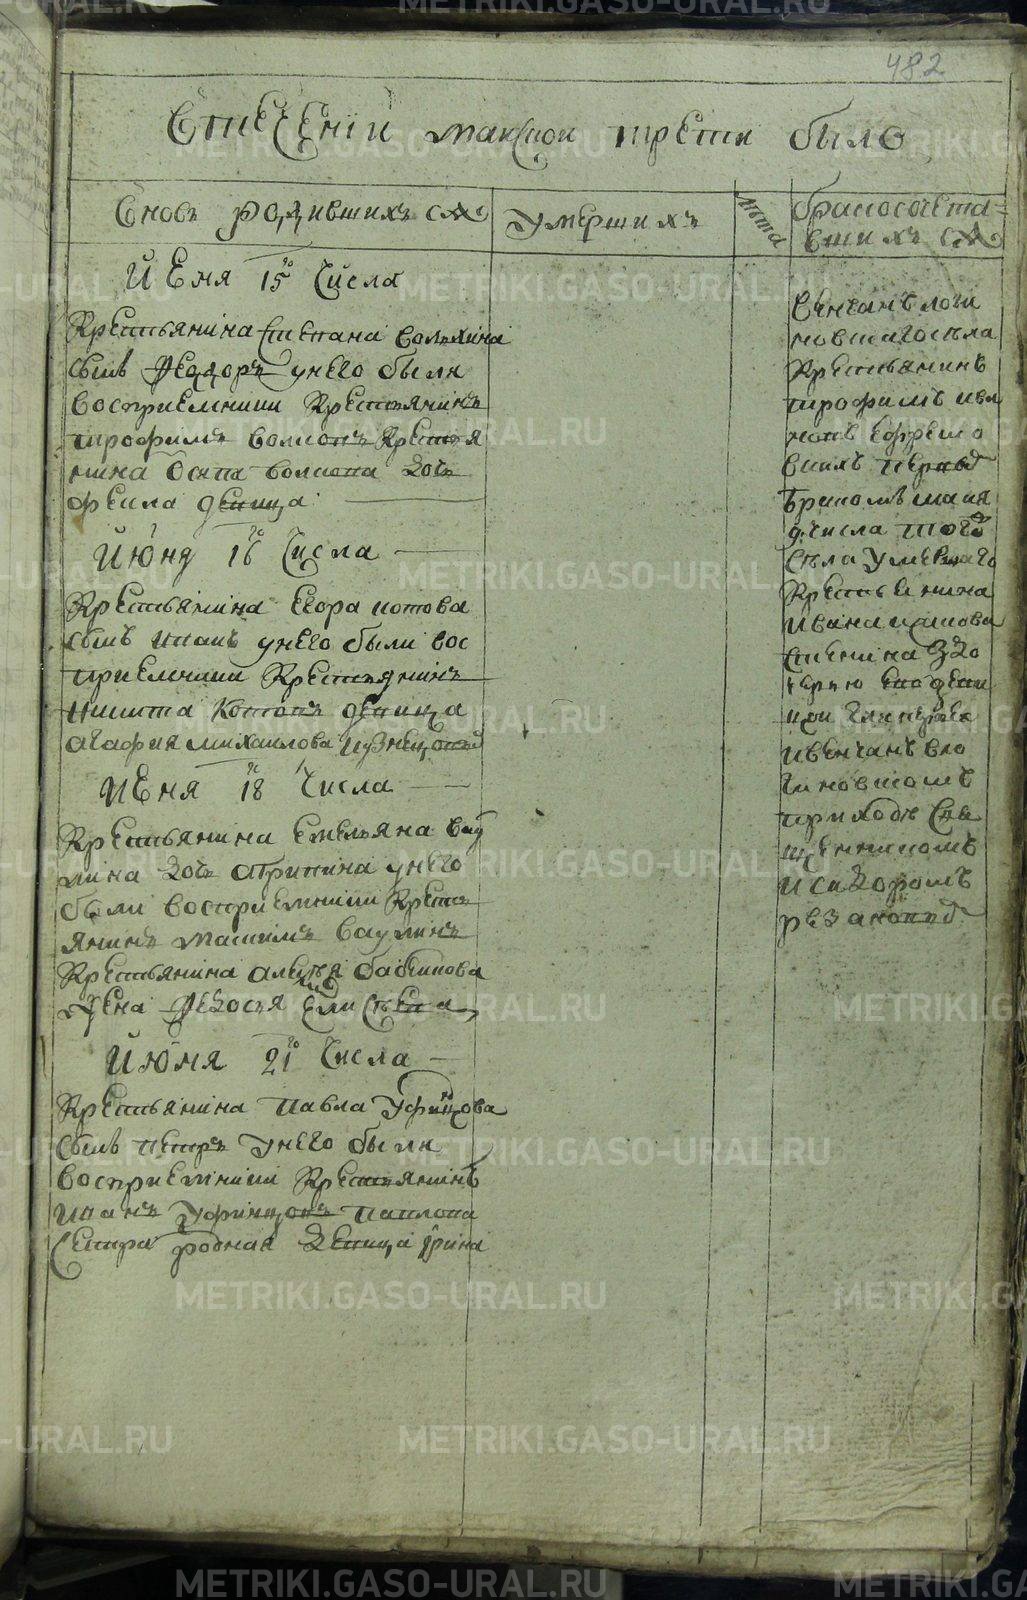 482
Втечении маиской трети было
Вновь родившихъ ся
Умершихъ
лѣта
бракосочета=
вшихъ ся
Июня 15 го Числа
Крестьянина Степана волкова
сынъ Феодоръ унего были
восприемники Крестьянинъ
трофимъ волковъ Крестья
нина Осипа волкова дочь
фекла девица
Июня 16 го Числа
Крестьянина Егора котова
сынъ иванъ унего были вос
приемники Крестьянинъ
никита Котовъ девица
агафия михаилова кузнецова
Июня 18 го Числа
Крестьянина Емельяна вау
лина дочь агрипина унего
были восприемники Кресть
янинъ максимъ ваулинъ
Крестьянина алексея бабкинова
жена Федосья
Июня 21 го Числа
Крестьянина Павла Уфинцова
сынъ петръ унего были
восприемники Крестьянинъ
иванъ Уфинцовъ павлова
Сестра родная девица ирина
Венчанъ логи
новшагосѣла
Крестьянинъ
трофимъ ива
новъ Ефремо
выхъ первы
бракомъ маия
9 числа тогож
сѣла Умершаго
Крестьянина
Ивана
степина здо
черью
ивенчанъ вло
гиновшомъ
приходѣ Свя
щенникомъ
исидоромъ
резановы
METRIKI.GASO-URAL.RU